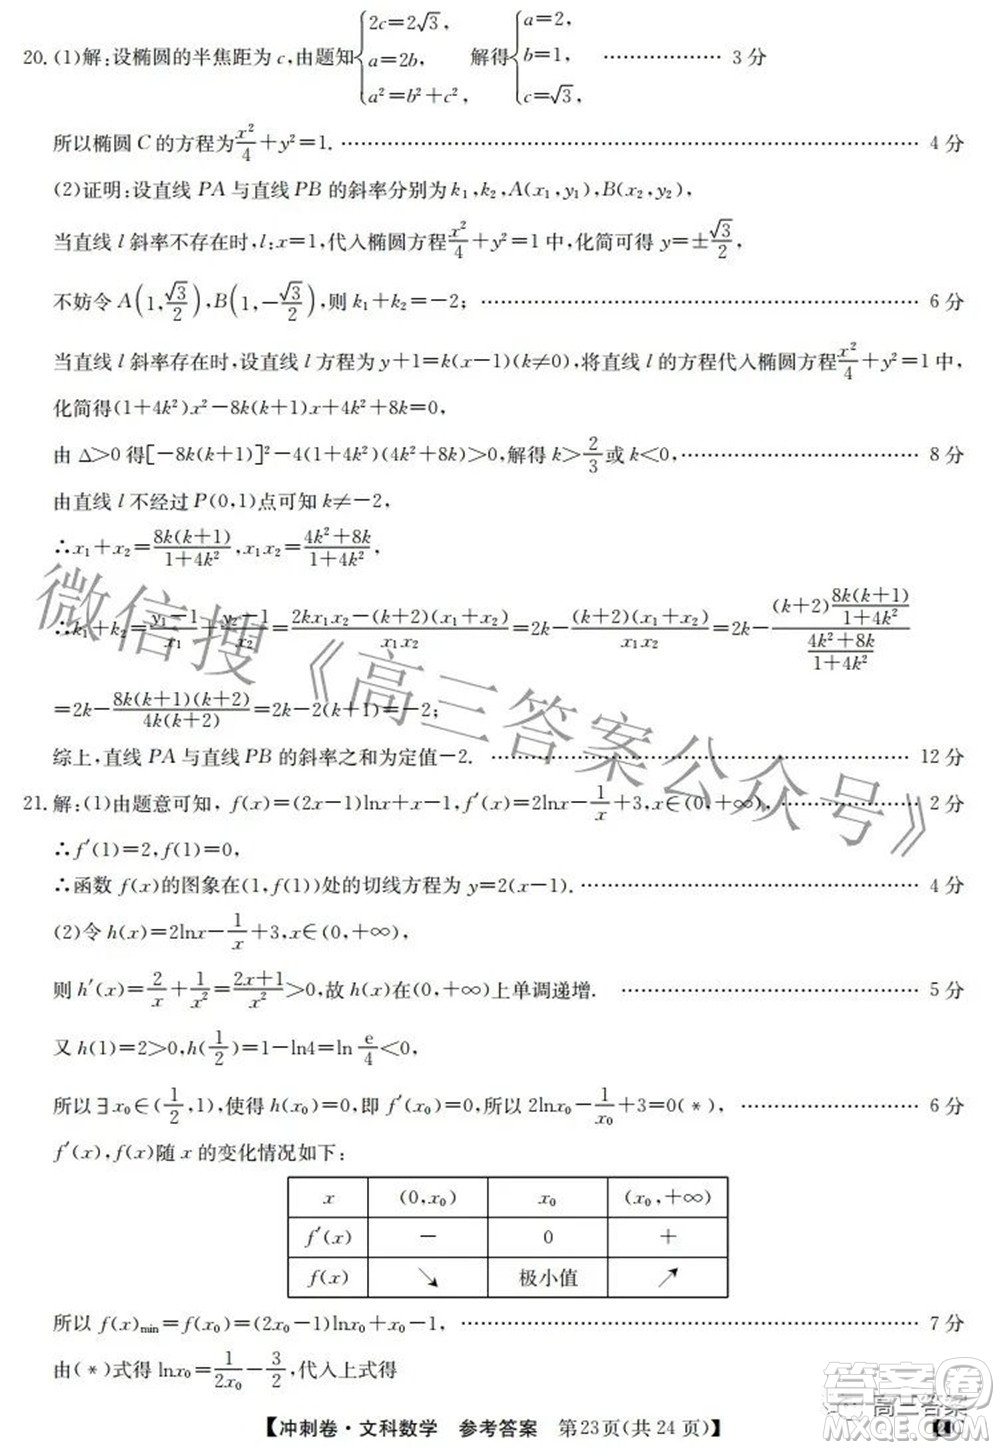 20.(1)解:设椭圆的半焦距为c,由题知{2c=2√3, a=2b, a²=b²+c², 解得{a=2, b=1, c=√3, ……………… 3分
所以椭圆C的方程为x²/4+y²=1. ……………… 4分
(2)证明:设直线PA与直线PB的斜率分别为k₁,k₂,A(x₁,y₁),B(x₂,y₂),
当直线l斜率不存在时,l:x=1,代入椭圆方程x²/4+y²=1中,化简可得y=±√3/2,
不妨令A(1,√3/2),B(1,-√3/2),则k₁+k₂=-2; ……………… 6分
当直线l斜率存在时,设直线l方程为y+1=k(x-1)(k≠0),将直线l的方程代入椭圆方程x²/4+y²=1中,
化简得(1+4k²)x²-8k(k+1)x+4k²+8k=0,
由Δ>0得[-8k(k+1)]²-4(1+4k²)(4k²+8k)>0,解得k>2/3或k<0, ……………… 8分
由直线l不经过P(0,1)点可知k≠-2,
∴x₁+x₂=8k(k+1)/(1+4k²),x₁x₂=(4k²+8k)/(1+4k²),
∴k₁+k₂=(y₁-1)/x₁+(y₂-1)/x₂=[2kx₁x₂-(k+2)(x₁+x₂)]/(x₁x₂)=2k-[(k+2)(x₁+x₂)]/(x₁x₂)=2k-[(k+2)8k(k+1)/(1+4k²)]/[(4k²+8k)/(1+4k²)]
=2k-8k(k+1)(k+2)/4k(k+2)=2k-2(k+1)=-2;
综上,直线PA与直线PB的斜率之和为定值-2. ……………… 12分
21.解:(1)由题意可知,f(x)=(2x-1)lnx+x-1,f′(x)=2lnx-1/x+3,x∈(0,+∞), ……………… 2分
∴f′(1)=2,f(1)=0,
∴函数f(x)的图象在(1,f(1))处的切线方程为y=2(x-1). ……………… 4分
(2)令h(x)=2lnx-1/x+3,x∈(0,+∞),
则h′(x)=2/x+1/x²=(2x+1)/x²>0,故h(x)在(0,+∞)上单调递增. ……………… 5分
又h(1)=2>0,h(1/2)=1-ln4=ln e/4<0,
所以∃x₀∈(1/2,1),使得h(x₀)=0,即f′(x₀)=0,所以2lnx₀-1/x₀+3=0(*), ……………… 6分
f′(x),f(x)随x的变化情况如下:
x (0,x₀) x₀ (x₀,+∞)
f′(x) - 0 +
f(x) ↘ 极小值 ↗
所以f(x)min=f(x₀)=(2x₀-1)lnx₀+x₀-1, ……………… 7分
由(*)式得lnx₀=1/(2x₀)-3/2,代入上式得
【冲刺卷·文科数学 参考答案 第23页(共24页)】
微信搜《高三答案公众号》
高三答案